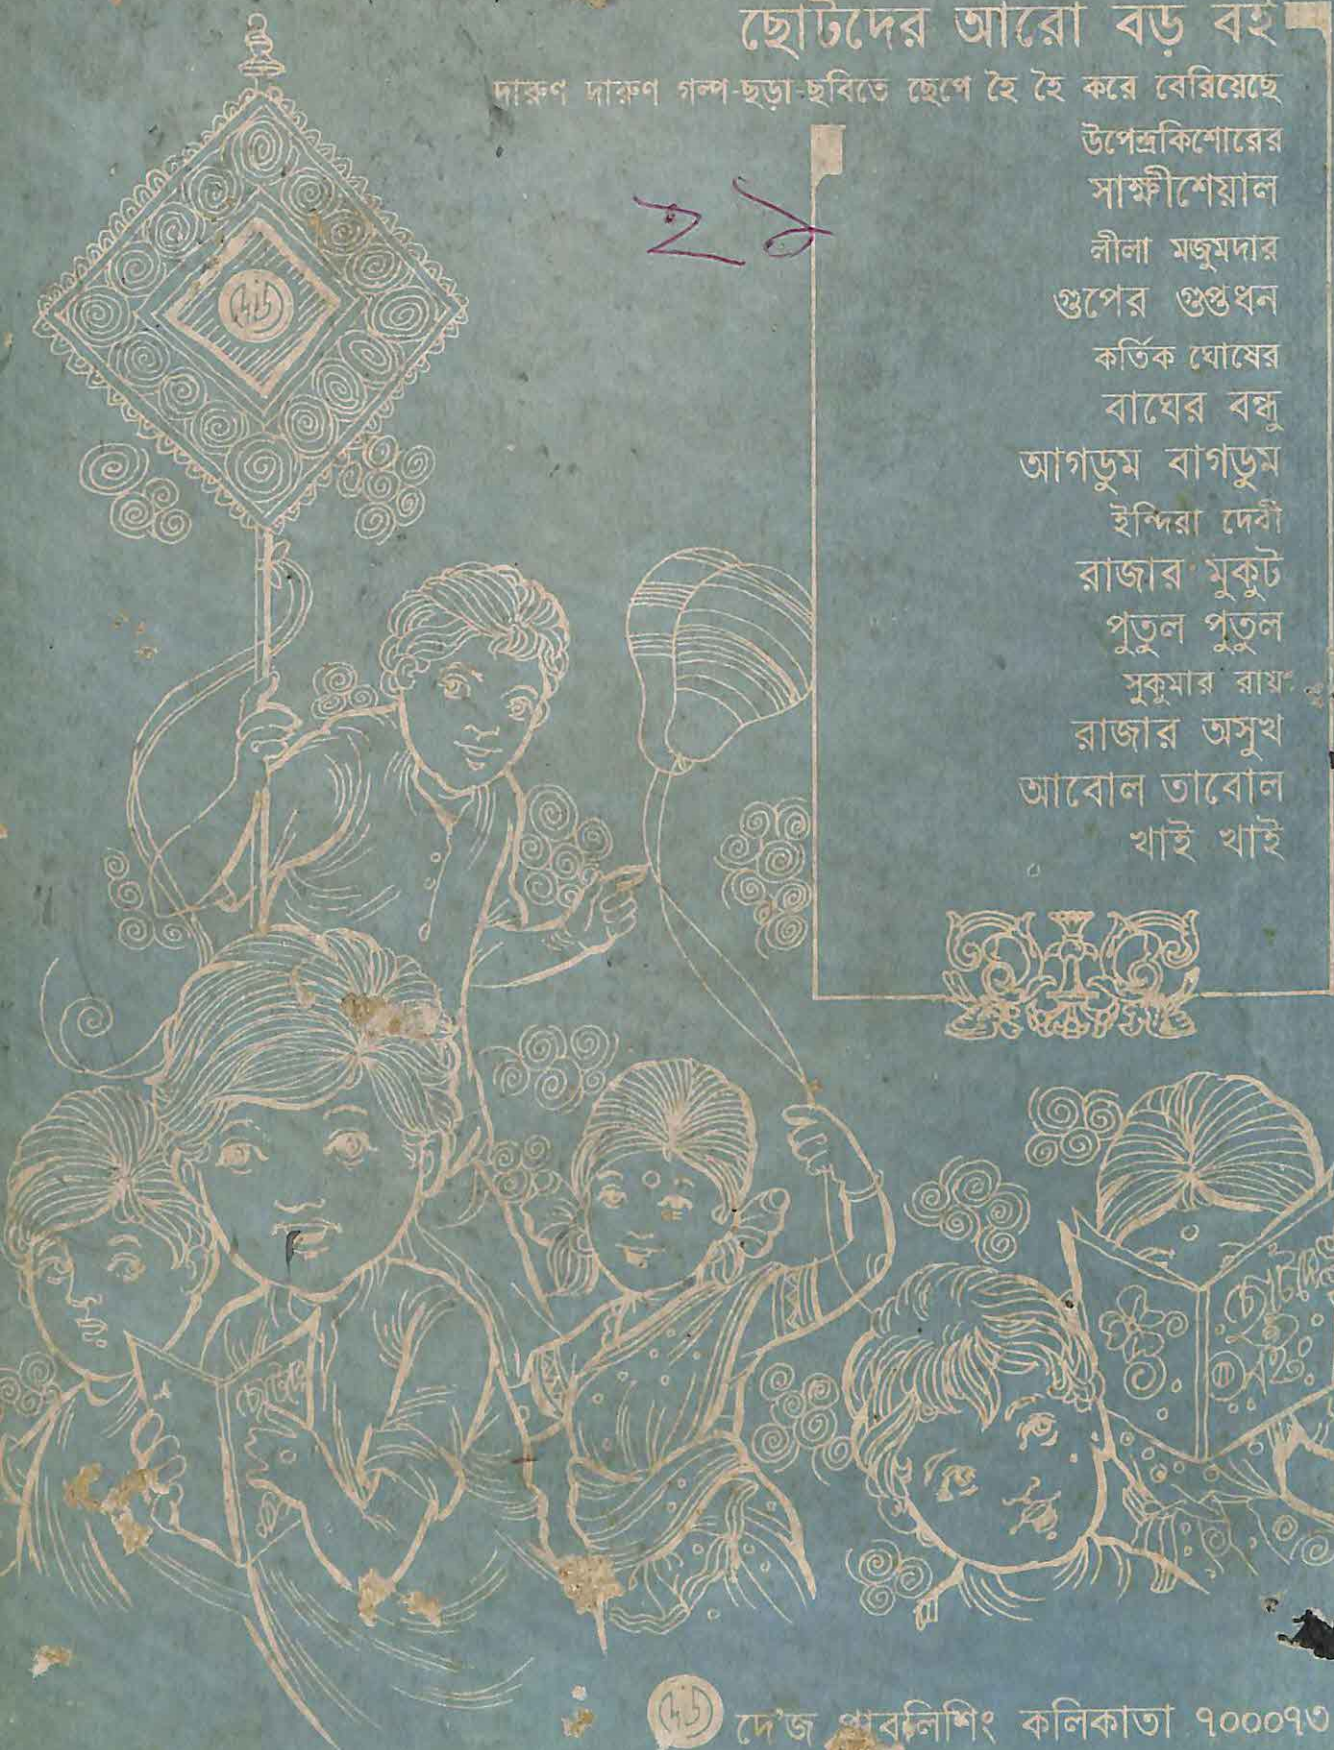 ছোটদের আরো বড় বই
দারুণ দারুণ গল্প-ছড়া-ছবিতে ছেপে হৈ হৈ করে বেরিয়েছে
উপেন্দ্রকিশোরের
সাক্ষীশেয়াল
২১
লীলা মজুমদার
গুপের গুপ্তধন
কর্তিক ঘোষের
বাঘের বন্ধু
আগডুম বাগডুম
ইন্দিরা দেবী
রাজার মুকুট
পুতুল পুতুল
সুকুমার রায়
রাজার অসুখ
আবোল তাবোল
খাই খাই
দে'জ পাবলিশিং কলিকাতা ৭০০০৭৩